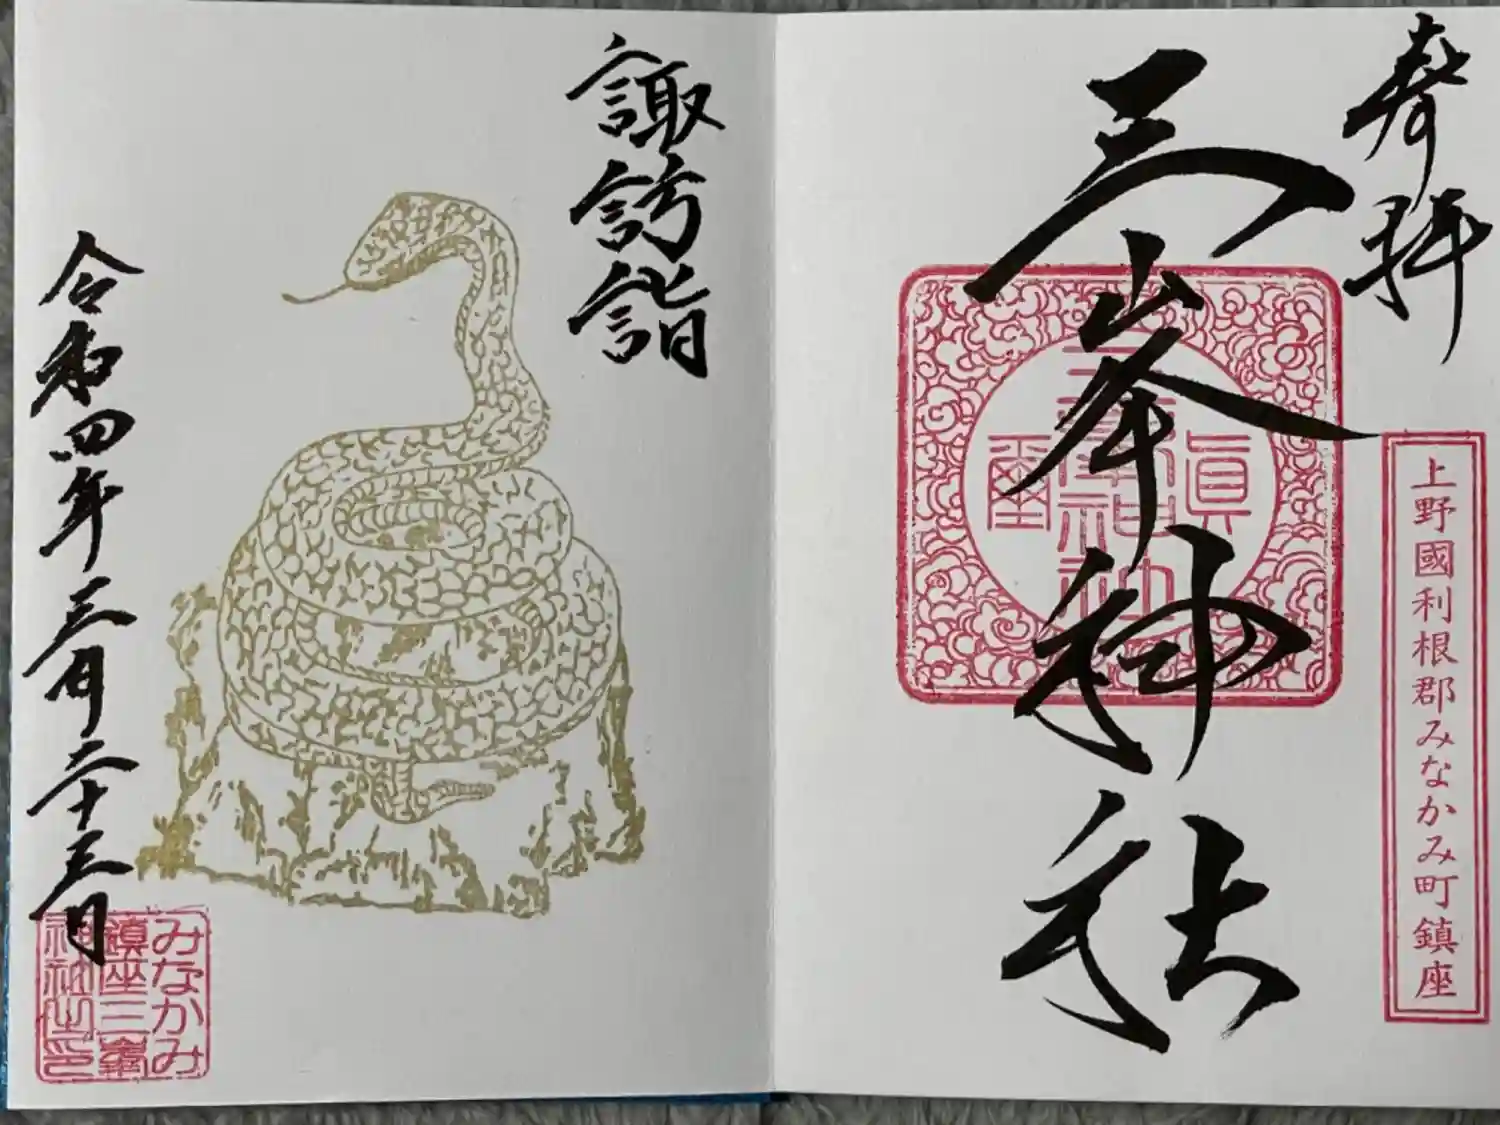 奉拝
三峯神社
三峯神社
眞
璽
上野國利根郡みなかみ町鎮座
諏訪詣
令和四年三月二十三日
みなかみ
鎮座三峯
神社之印